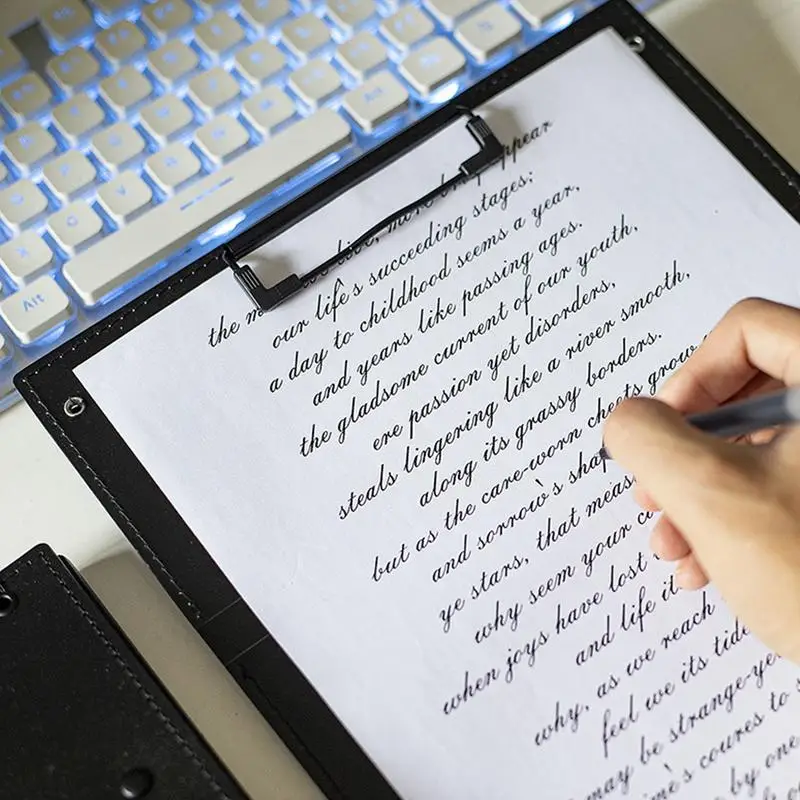 Alt
Alt
the we live, more appear
our life's succeeding stages;
a day to childhood seems a year,
and years like passing ages.
the gladsome current of our youth,
ere passion yet disorders,
steals lingering like a river smooth,
along its grassy borders.
but as the care-worn cheeks grow
and sorrow's
ye stars, that
why seem your
when joys have lost
and life
why, as we reach
feel we its
may be
coures to
by one